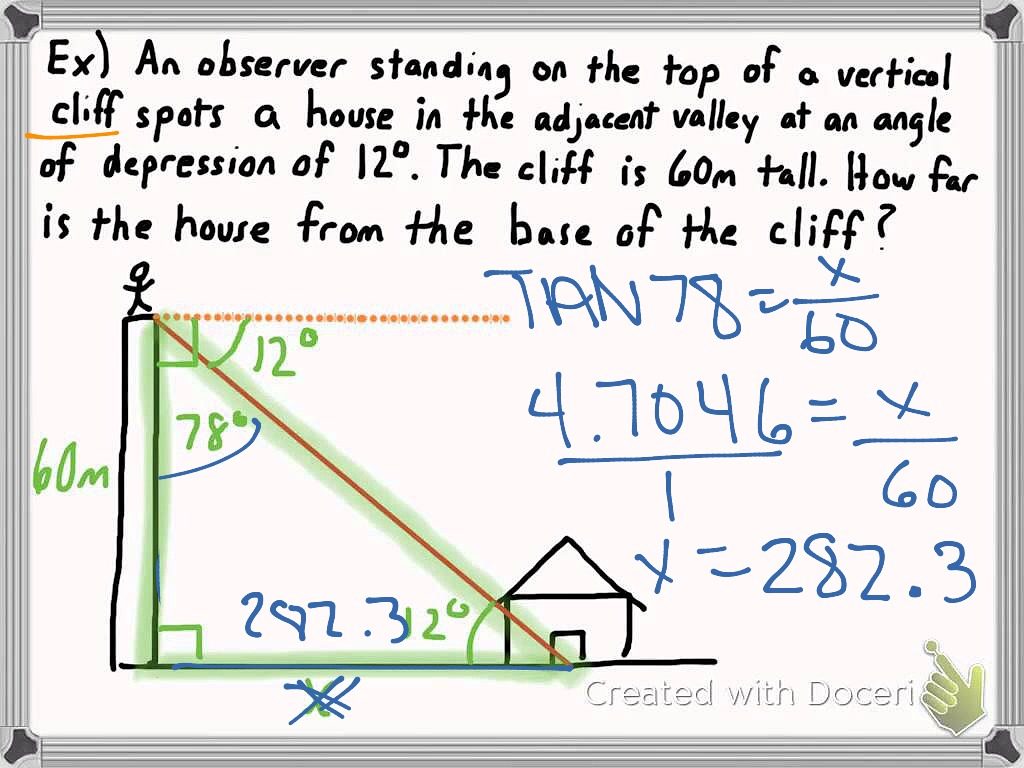 Ex) An observer standing on the top of a vertical
cliff spots a house in the adjacent valley at an angle
of depression of 12°. The cliff is 60m tall. How far
is the house from the base of the cliff?
TAN 78 = x/60
12°
78°
4.7046/1 = x/60
60m
x = 282.3
282.3
12°
x
Created with Doceri